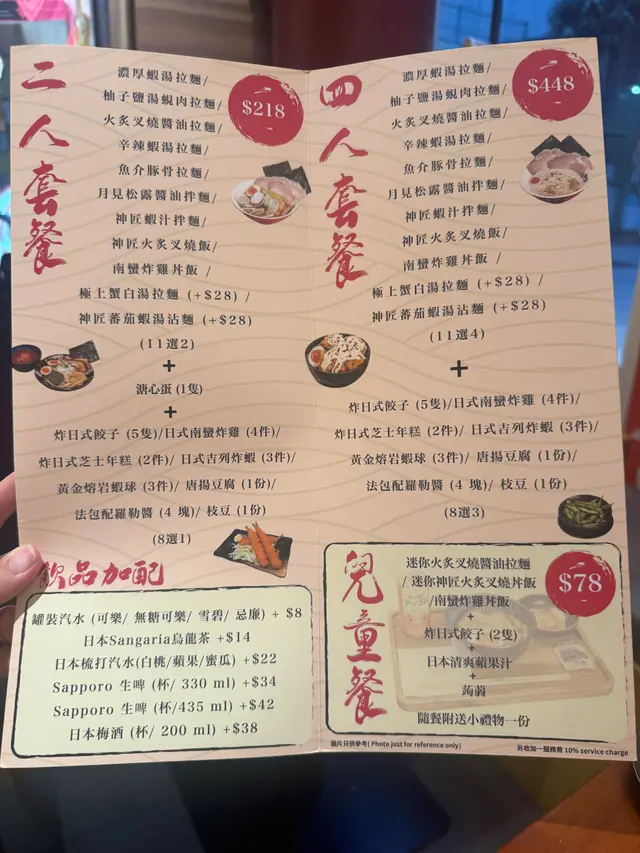 二人套餐
$218
濃厚蝦湯拉麵/
柚子鹽湯蜆肉拉麵/
火炙叉燒醬油拉麵/
辛辣蝦湯拉麵/
魚介豚骨拉麵/
月見松露醬油拌麵/
神匠蝦汁拌麵/
神匠火炙叉燒飯/
南蠻炸雞丼飯 /
極上蟹白湯拉麵 (+$28) /
神匠蕃茄蝦湯沾麵 (+$28)
(11選2)
+
溏心蛋 (1隻)
+
炸日式餃子 (5隻)/日式南蠻炸雞 (4件)/
炸日式芝士年糕 (2件)/ 日式吉列炸蝦 (3件)/
黃金熔岩蝦球 (3件)/ 唐揚豆腐 (1份)/
法包配羅勒醬 (4 塊)/ 枝豆 (1份)
(8選1)
飲品加配
罐裝汽水 (可樂/ 無糖可樂/ 雪碧/ 忌廉) + $8
日本Sangaria烏龍茶 +$14
日本梳打汽水(白桃/蘋果/蜜瓜) +$22
Sapporo 生啤 (杯/ 330 ml) +$34
Sapporo 生啤 (杯/435 ml) +$42
日本梅酒 (杯/ 200 ml) +$38
四人套餐
$448
濃厚蝦湯拉麵/
柚子鹽湯蜆肉拉麵/
火炙叉燒醬油拉麵/
辛辣蝦湯拉麵/
魚介豚骨拉麵/
月見松露醬油拌麵/
神匠蝦汁拌麵/
神匠火炙叉燒飯/
南蠻炸雞丼飯 /
極上蟹白湯拉麵 (+$28) /
神匠蕃茄蝦湯沾麵 (+$28)
(11選4)
+
炸日式餃子 (5隻)/日式南蠻炸雞 (4件)/
炸日式芝士年糕 (2件)/ 日式吉列炸蝦 (3件)/
黃金熔岩蝦球 (3件)/ 唐揚豆腐 (1份)/
法包配羅勒醬 (4 塊)/ 枝豆 (1份)
(8選3)
兒童餐
$78
迷你火炙叉燒醬油拉麵
/ 迷你神匠火炙叉燒丼飯
/南蠻炸雞丼飯
+
炸日式餃子 (2隻)
+
日本清爽蘋果汁
+
蒟蒻
隨餐附送小禮物一份
圖片只供參考( Photo just for reference only)
另收加一服務費 10% service charge